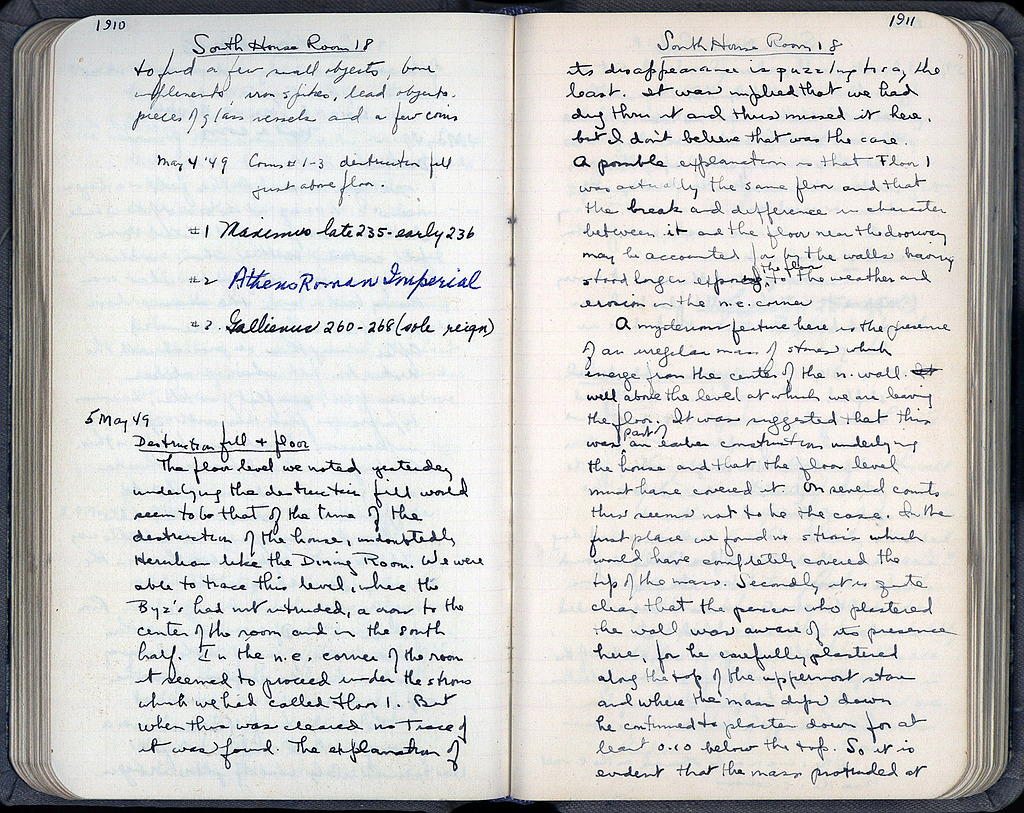 1910
South House Room 18
to find a few small objects, bone
implements, iron spikes, lead objects.
pieces of glass vessels and a few coins
May 4 '49 Coins #1-3 destruction fill
just above floor.
#1 Maximus late 235-early 236
#2 Athens Roman Imperial
#3. Gallienus 260-268 (sole reign)
5 May 49
Destruction fill + floor
The floor level we noted yesterday
underlying the destruction fill would
seem to be that of the time of the
destruction of the house, undoubtedly
Herulian like the Dining Room. We were
able to trace this level, where the
Byz's had not intruded, across to the
center of the room and in the south
half. In the n.e. corner of the room
it seemed to proceed under the strosis
which we had called Floor 1. But
when this was cleared no trace of
it was found. The explanation of
1911
South House Room 18
its disappearance is puzzling to say the
least. It was implied that we had
dug thru it and thus missed it here,
but I don't believe that was the case.
A possible explanation is that Floor 1
was actually the same floor and that
the break and difference in character
between it and the floor near the doorway
may be accounted for by the walls having
stood longer exposing the floor to the weather and
erosion in the n.e. corner
A mysterious feature here is the presence
of an irregular mass of stones which
emerge from the center of the n. wall.
well above the level at which we are leaving
the floor. It was suggested that this
was part of an earlier construction underlying
the house and that the floor level
must have covered it. On several counts
this seems not to be the case. In the
first place we found no strosis which
would have completely covered the
top of the mass. Secondly it is quite
clear that the person who plastered
the wall was aware of its presence
here, for he carefully plastered
along the top of the uppermost stone
and where the mass dips down
he continued to plaster down for at
least 0.10 below the top. So it is
evident that the mass protruded at